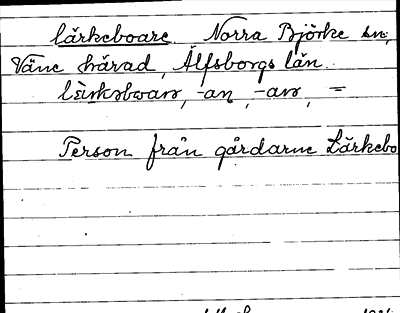 lärkeboare Norra Björke sn,
Väne härad, Älfsborgs län.
-an, -ar, =
Person från gårdarne Lärkebo